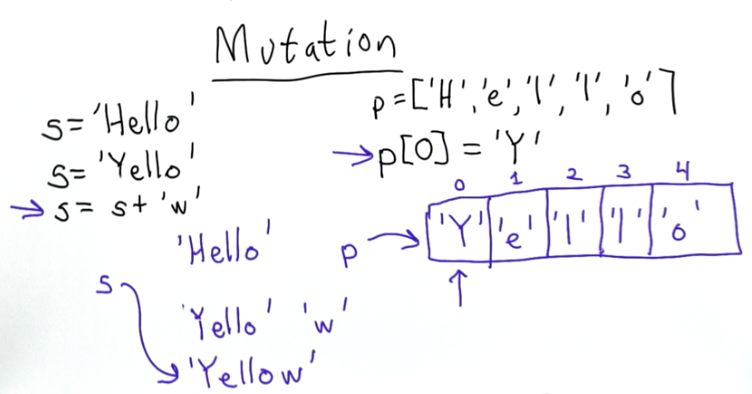 Mutation
s='Hello'
s='Yello'
→ s= s+'w'
'Hello'
s
'Yello' 'w'
'Yellow'
p=['H','e','l','l','o']
→ p[0]='Y'
0 1 2 3 4
p → 'Y' 'e' 'l' 'l' 'o'
↑